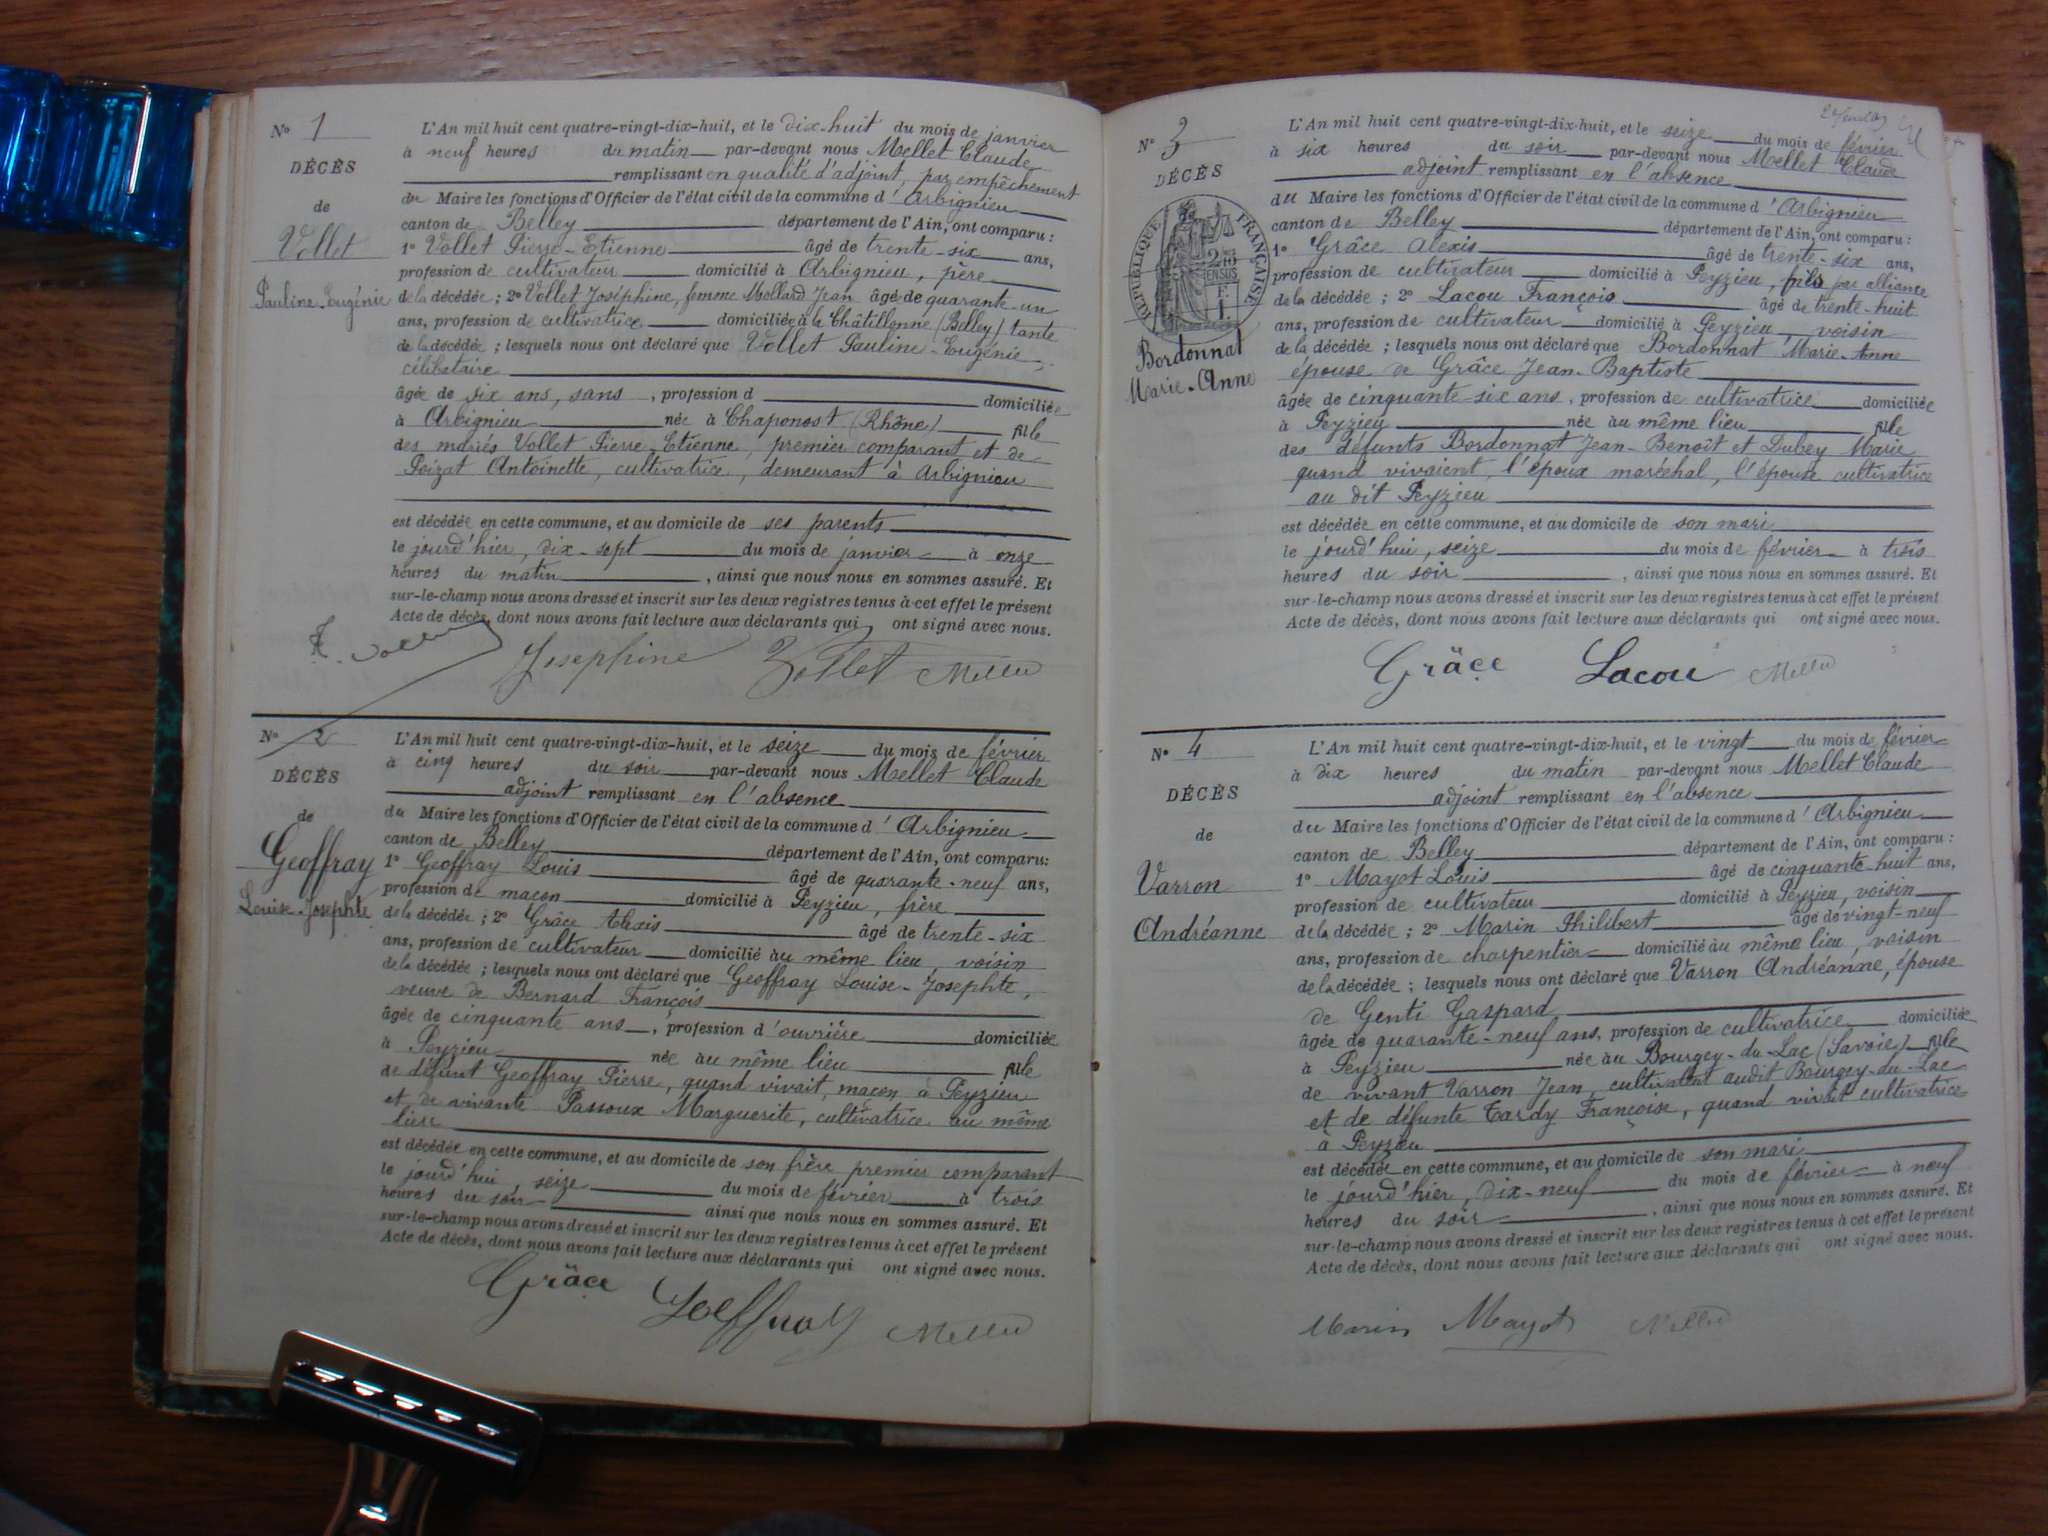 N° 1
DÉCÈS
de
Vollet
Pauline-Eugénie
L'An mil huit cent quatre-vingt-dix-huit, et le dix-huit du mois de janvier
à neuf heures du matin par-devant nous Mellet Claude
remplissant en qualité d'adjoint, par empêchement
du Maire les fonctions d'Officier de l'état civil de la commune d'Arbignieu
canton de Belley département de l'Ain, ont comparu :
1° Vollet Pierre-Etienne âgé de trente-six ans,
profession de cultivateur domicilié à Arbignieu, père
de la décédée ; 2° Vollet Joséphine, femme Mollard Jean âgé de quarante-un
ans, profession de cultivatrice domiciliée à la Châtillonne (Belley) tante
de la décédée ; lesquels nous ont déclaré que Vollet Pauline-Eugénie,
célibataire
âgée de six ans, sans, profession d domiciliée
à Arbignieu née à Chaponost (Rhône) fille
des mariés Vollet Pierre-Etienne, premier comparant et de
Poizat Antoinette, cultivatrice, demeurant à Arbignieu
est décédée en cette commune, et au domicile de ses parents
le jourd'hier, dix-sept du mois de janvier à onze
heures du matin, ainsi que nous nous en sommes assuré. Et
sur-le-champ nous avons dressé et inscrit sur les deux registres tenus à cet effet le présent
Acte de décès, dont nous avons fait lecture aux déclarants qui ont signé avec nous.
Josephine Vollet Mellet
N° 2
DÉCÈS
de
Geoffray
Louise-Josephte
L'An mil huit cent quatre-vingt-dix-huit, et le seize du mois de février
à cinq heures du soir par-devant nous Mellet Claude
adjoint remplissant en l'absence
du Maire les fonctions d'Officier de l'état civil de la commune d'Arbignieu
canton de Belley département de l'Ain, ont comparu :
1° Geoffray Louis âgé de quarante-neuf ans,
profession de maçon domicilié à Peyzieu, frère
de la décédée ; 2° Grâce Alexis âgé de trente-six
ans, profession de cultivateur domicilié au même lieu, voisin
de la décédée ; lesquels nous ont déclaré que Geoffray Louise-Josephte,
veuve de Bernard François
âgée de cinquante ans, profession d'ouvrière domiciliée
à Peyzieu née au même lieu fille
de défunt Geoffray Pierre, quand vivait, maçon à Peyzieu
et de vivante Passoux Marguerite, cultivatrice au même
lieu
est décédée en cette commune, et au domicile de son frère premier comparant
le jourd'hui, seize du mois de février à trois
heures du soir ainsi que nous nous en sommes assuré. Et
sur-le-champ nous avons dressé et inscrit sur les deux registres tenus à cet effet le présent
Acte de décès, dont nous avons fait lecture aux déclarants qui ont signé avec nous.
Grâce Geoffray Mellet
N° 3
DÉCÈS
RÉPUBLIQUE FRANÇAISE
Bordonnat
Marie-Anne
L'An mil huit cent quatre-vingt-dix-huit, et le seize du mois de février
à six heures du soir par-devant nous Mellet Claude
adjoint remplissant en l'absence
du Maire les fonctions d'Officier de l'état civil de la commune d'Arbignieu
canton de Belley département de l'Ain, ont comparu :
1° Grâce Alexis âgé de trente-six ans,
profession de cultivateur domicilié à Peyzieu, fils par alliance
de la décédée ; 2° Lacou François âgé de trente-huit
ans, profession de cultivateur domicilié à Peyzieu, voisin
de la décédée ; lesquels nous ont déclaré que Bordonnat Marie-Anne
épouse de Grâce Jean-Baptiste
âgée de cinquante-six ans, profession de cultivatrice domiciliée
à Peyzieu née au même lieu fille
des défunts Bordonnat Jean-Benoît et Dubey Marie
quand vivaient, l'époux maréchal, l'épouse cultivatrice
au dit Peyzieu
est décédée en cette commune, et au domicile de son mari
le jourd'hui, seize du mois de février à trois
heures du soir, ainsi que nous nous en sommes assuré. Et
sur-le-champ nous avons dressé et inscrit sur les deux registres tenus à cet effet le présent
Acte de décès, dont nous avons fait lecture aux déclarants qui ont signé avec nous.
Grâce Lacou Mellet
N° 4
DÉCÈS
de
Varron
Andréanne
L'An mil huit cent quatre-vingt-dix-huit, et le vingt du mois de février
à dix heures du matin par-devant nous Mellet Claude
adjoint remplissant en l'absence
du Maire les fonctions d'Officier de l'état civil de la commune d'Arbignieu
canton de Belley département de l'Ain, ont comparu :
1° Mayot Louis âgé de cinquante-huit ans,
profession de cultivateur domicilié à Peyzieu, voisin
de la décédée ; 2° Marin Philibert âgé de vingt-neuf
ans, profession de charpentier domicilié au même lieu, voisin
de la décédée ; lesquels nous ont déclaré que Varron Andréanne, épouse
de Genti Gaspard
âgée de quarante-neuf ans, profession de cultivatrice domiciliée
à Peyzieu née au Bourgey-du-Lac (Savoie) fille
de vivant Varron Jean, cultivateur audit Bourgey-du-Lac
et de défunte Tardy Françoise, quand vivait cultivatrice
à Peyzieu
est décédée en cette commune, et au domicile de son mari
le jourd'hier, dix-neuf du mois de février à neuf
heures du soir, ainsi que nous nous en sommes assuré. Et
sur-le-champ nous avons dressé et inscrit sur les deux registres tenus à cet effet le présent
Acte de décès, dont nous avons fait lecture aux déclarants qui ont signé avec nous.
Marin Mayot Mellet